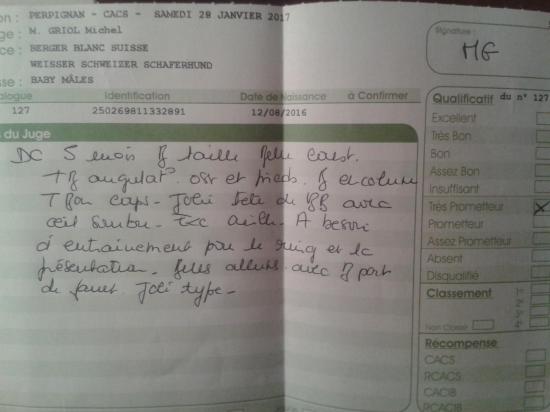 on : PERPIGNAN - CACS - SAMEDI 28 JANVIER 2017
ge : M. GRIOL Michel
ce : BERGER BLANC SUISSE
WEISSER SCHWEIZER SCHAFERHUND
sse : BABY MÂLES
Signature :
MG
alogue Identification Date de Naissance à Confirmer
127 250269811332891 12/08/2016
s du Juge
DC 5 mois B taille belle
TB angulat° oss et pieds. B encolure
T Bon Caps - Joli tete de BB avec
œil sombre - Exc oreille - A besoin
d'entrainement pour le ring et la
présentation - Belles allures avec B port
de fouet. Joli type -
Qualificatif du n° 127
Excellent
Très Bon
Bon
Assez Bon
Insuffisant
Très Prometteur X
Prometteur
Assez Prometteur
Absent
Disqualifié
Classement
Non Classé
Récompense
CACS
RCACS
CACIB